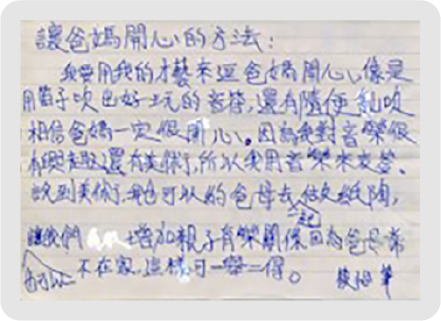 讓爸媽開心的方法:
我要用我的才藝來逗爸媽開心,像是
用笛子吹出好玩的音符,還有隨便亂吹
相信爸媽一定很開心。因為我對音樂很
有興趣還有美術,所以我用音樂來
說到美術,我也可以約爸母去做紙陶,
讓我們增加親子育樂關係因為爸母常
不在家,這樣可一舉二得。